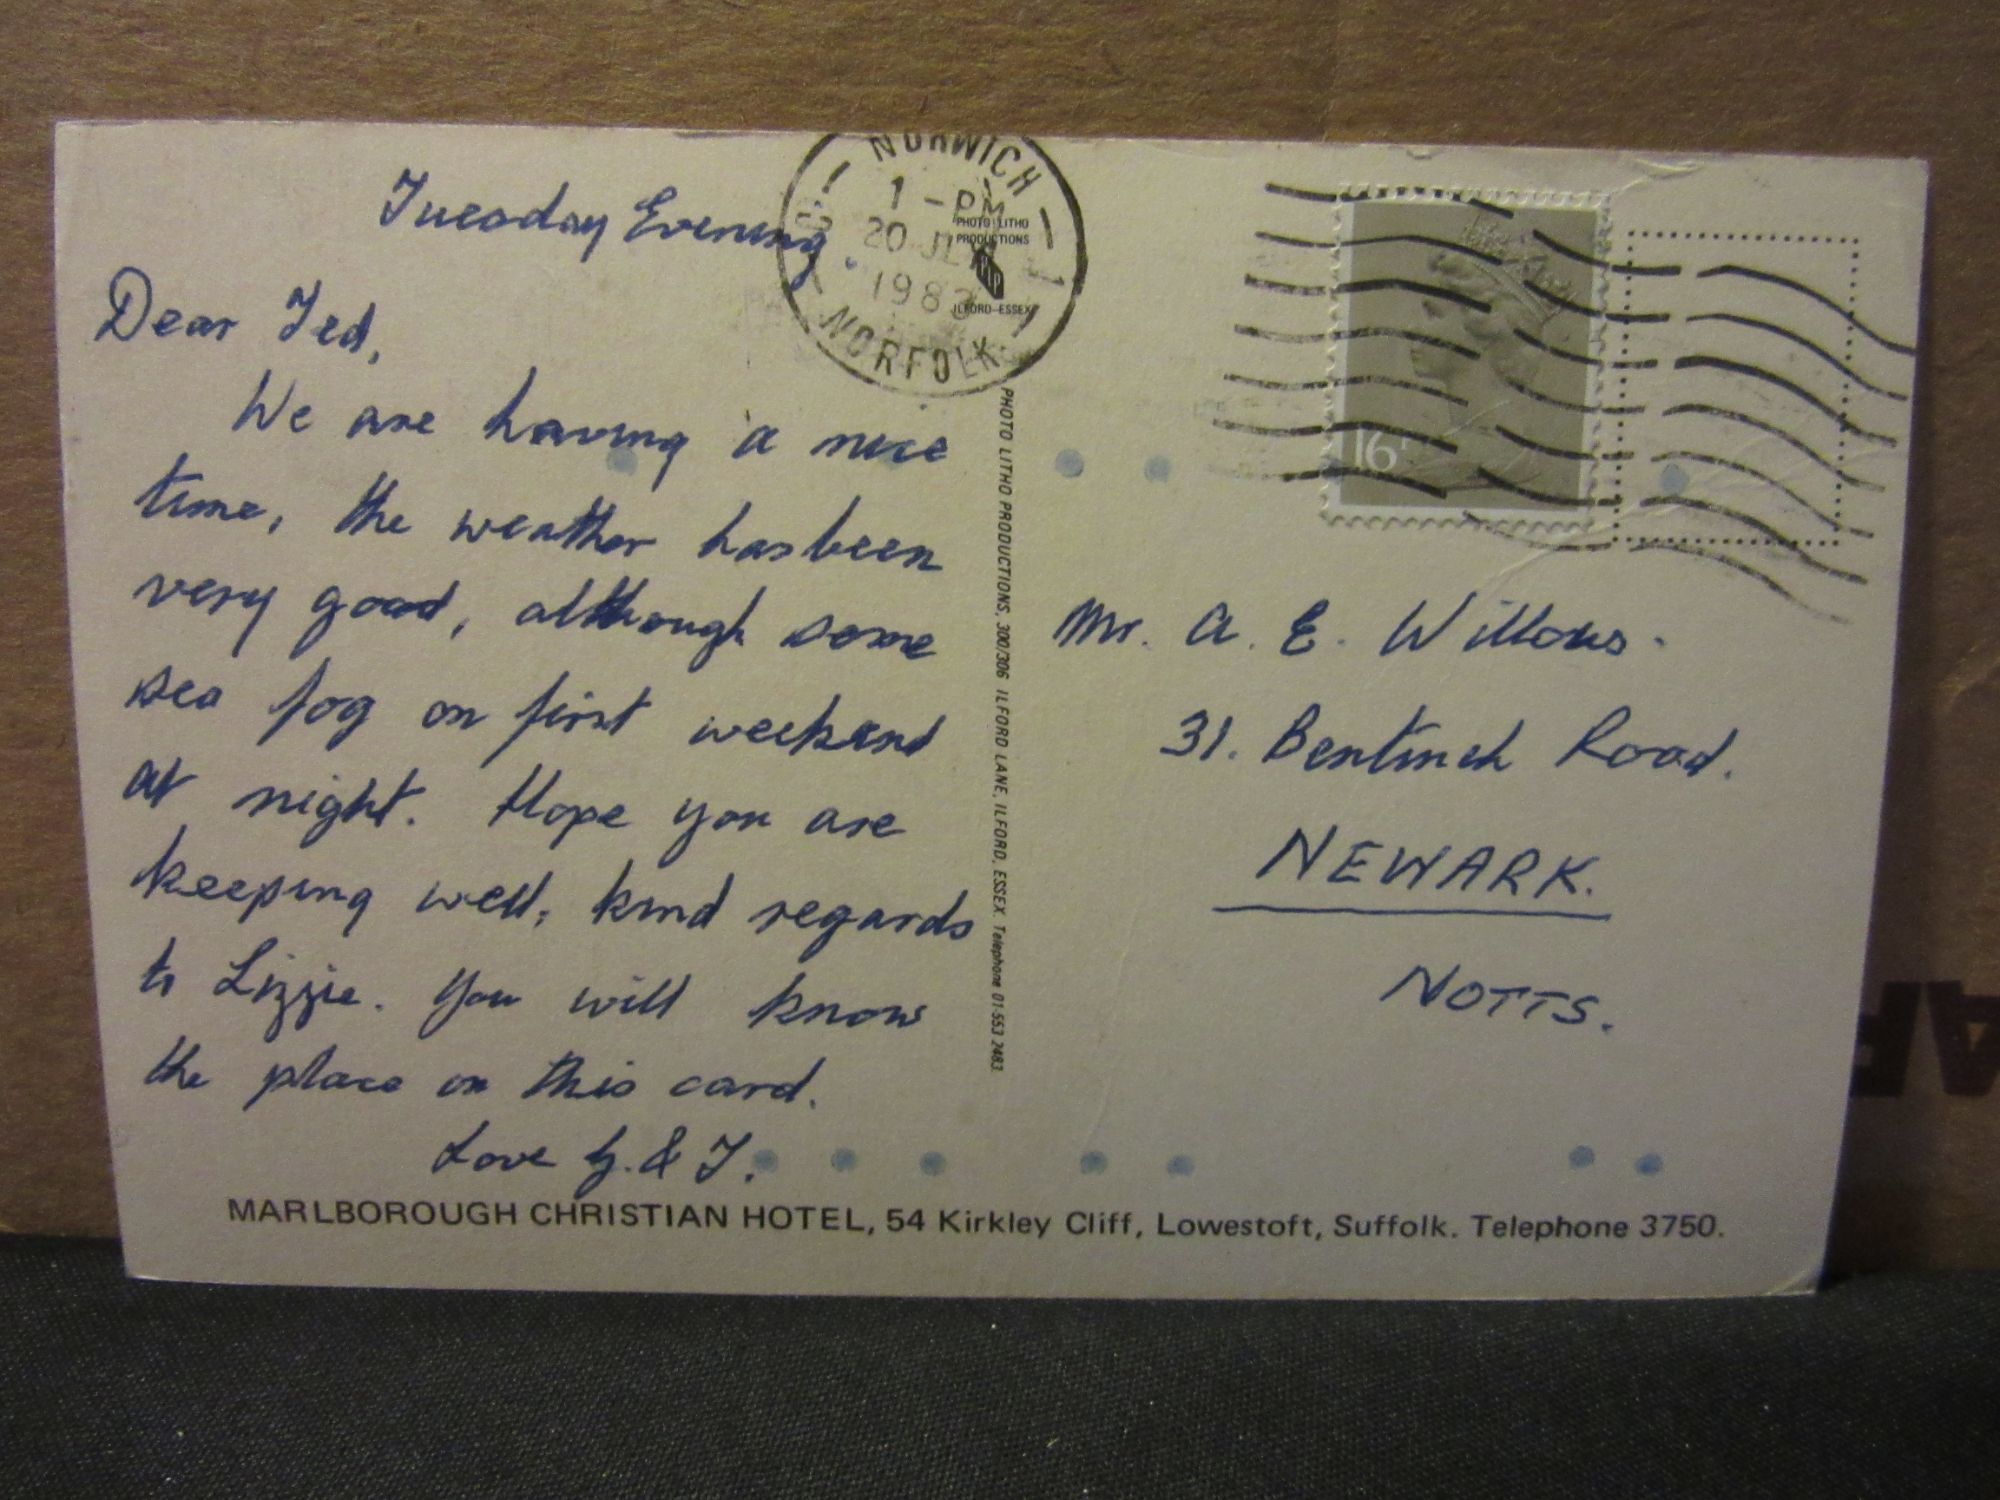 Tuesday Evening.
Dear Ted,
We are having a nice
time, the weather has been
very good, although some
sea fog on first weekend
at night. Hope you are
keeping well, kind regards
to Lizzie. You will know
the place on this card.
Love G. & T.
NORWICH
1 - PM
20 JLY
1983
NORFOLK
PHOTO LITHO
PRODUCTIONS
PLP
ILFORD-ESSEX
PHOTO LITHO PRODUCTIONS, 300/306 ILFORD LANE, ILFORD, ESSEX. Telephone 01-553 2483.
16P
Mr. A. E. Willows.
31. Bentinck Road.
NEWARK.
NOTTS.
MARLBOROUGH CHRISTIAN HOTEL, 54 Kirkley Cliff, Lowestoft, Suffolk. Telephone 3750.